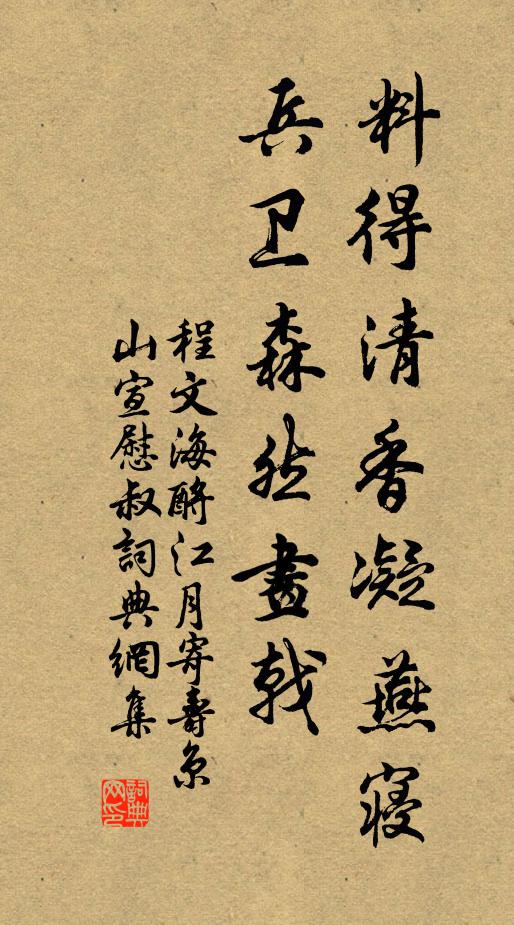 料得清香凝燕寝
兵卫森然畫戟
程文海酹江月寄壽京
山宣慰叔詞典網集
詞典网印